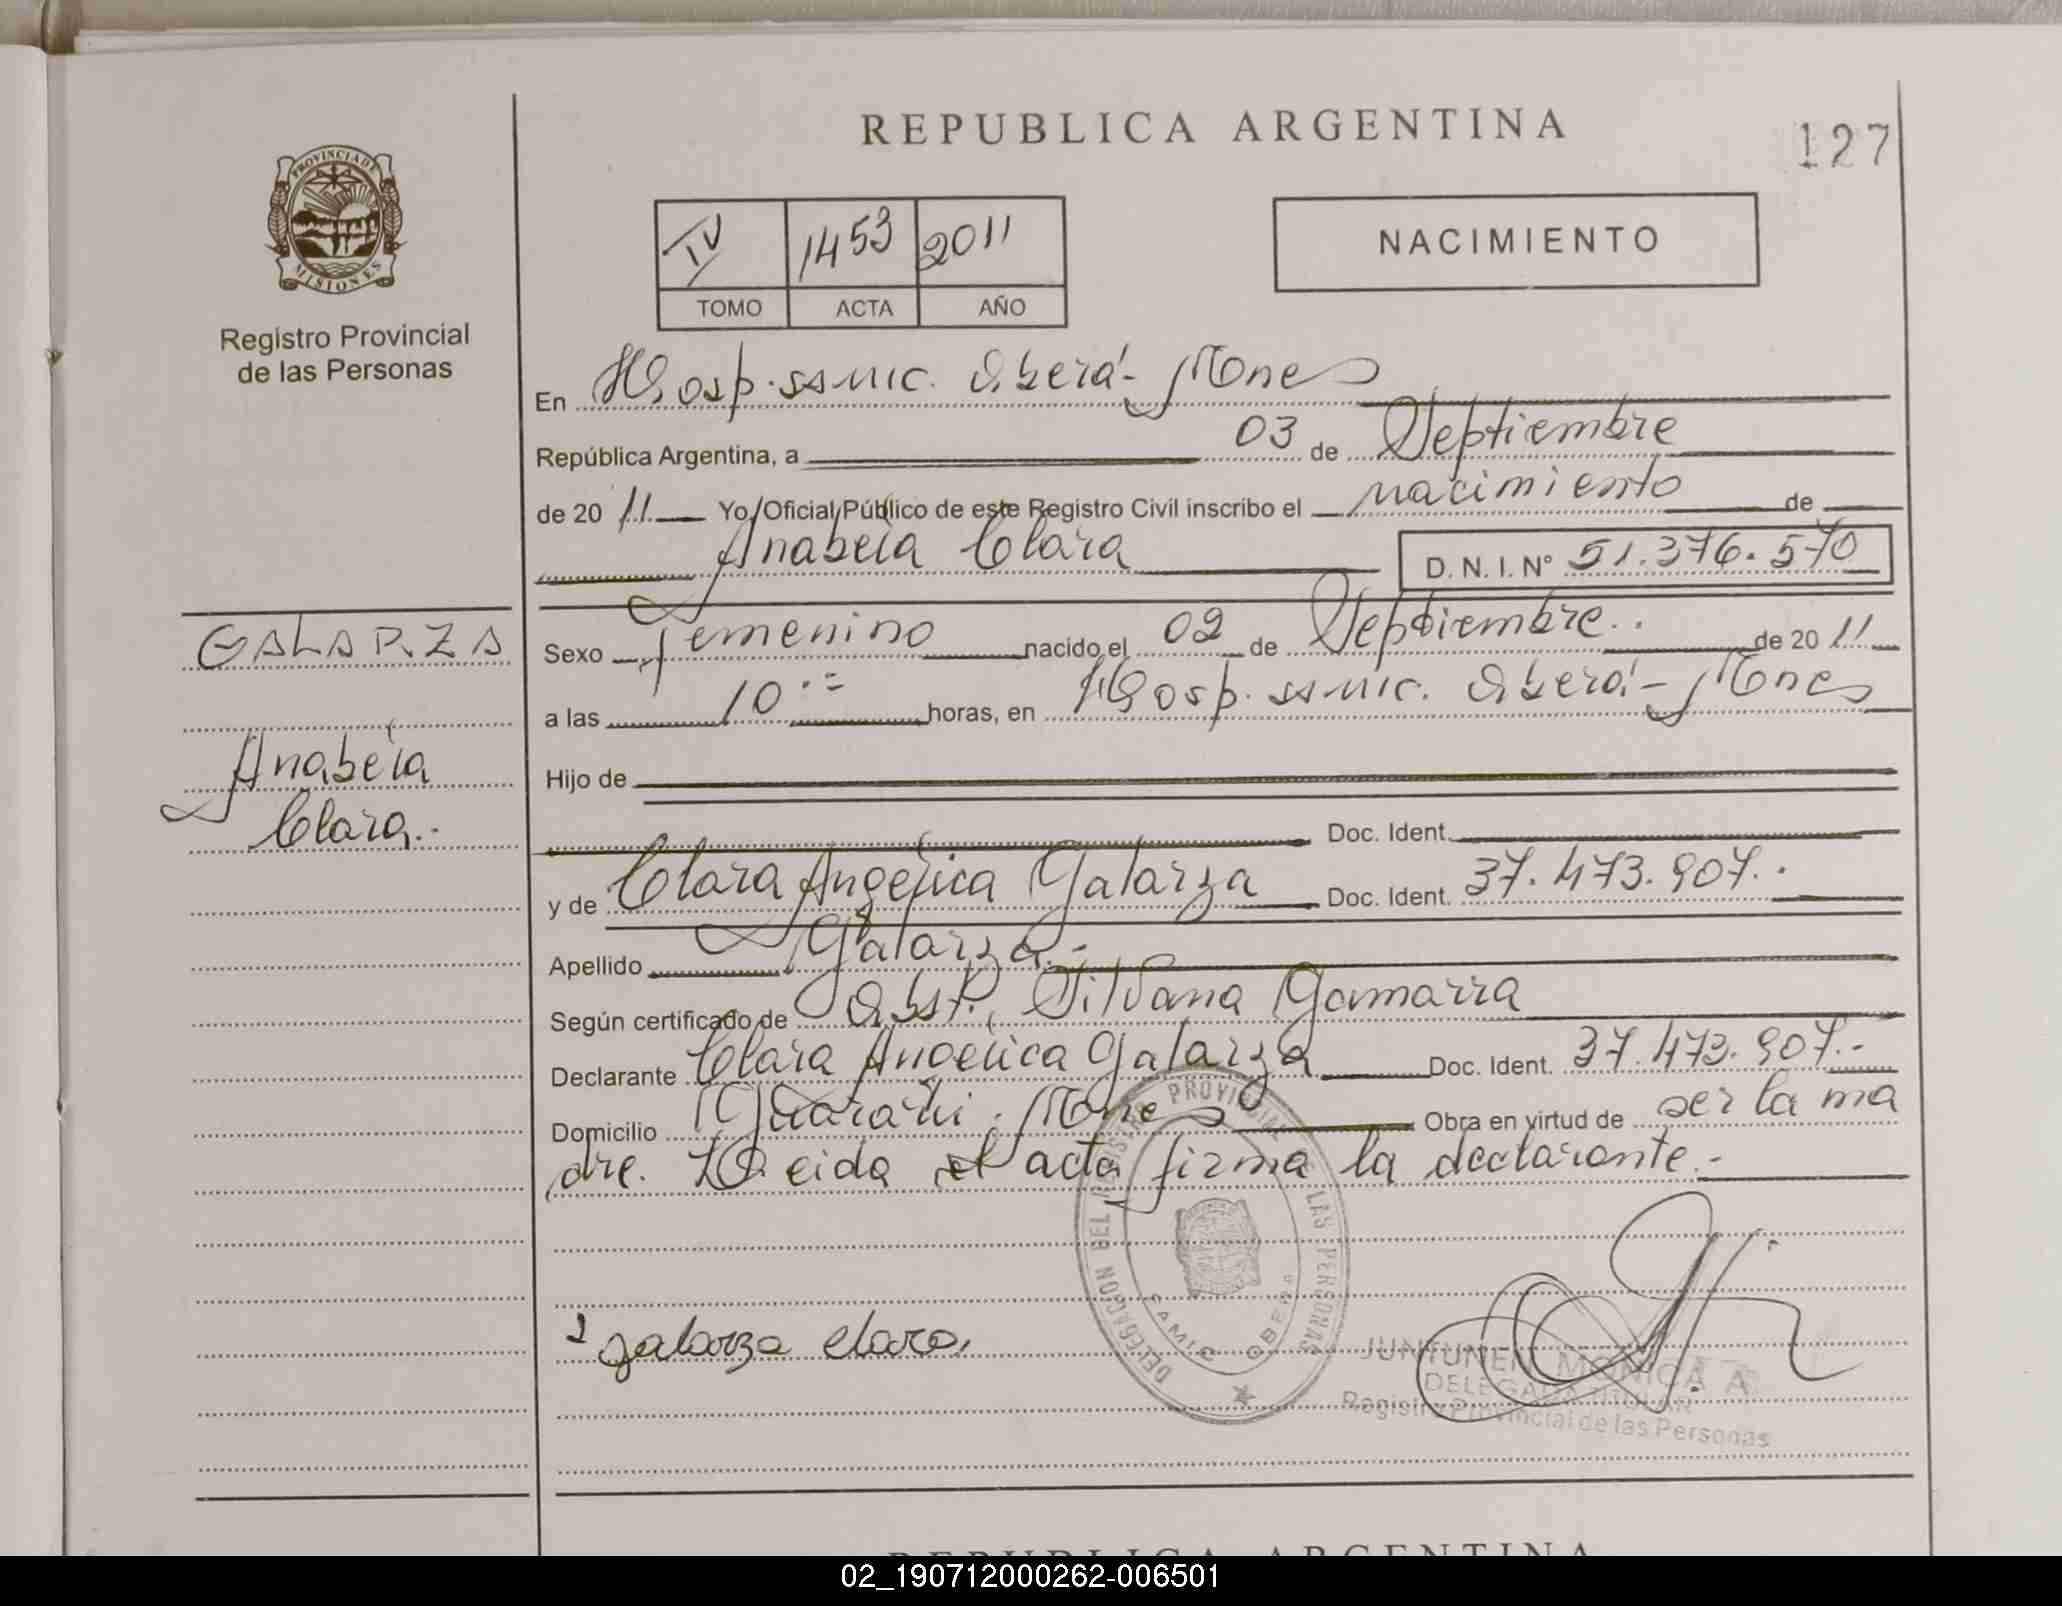 REPUBLICA ARGENTINA
127
PROVINCIA DE
MISIONES
Registro Provincial
de las Personas
IV 1453 2011
TOMO ACTA AÑO
NACIMIENTO
En Hosp. SAMIC. Oberá - Mnes
República Argentina, a 03 de Septiembre
de 20 11 Yo, Oficial Público de este Registro Civil inscribo el nacimiento de
Anabela Clara D. N. I. N° 51.376.570
GALARZA
Anabela
Clara.-
Sexo femenino nacido el 02 de Septiembre.. de 20 11
a las 10.= horas, en Hosp. SAMIC. Oberá - Mnes
Hijo de
Doc. Ident.
y de Clara Angelica Galarza Doc. Ident. 37.473.907.-
Apellido Galarza.-
Según certificado de Obst. Silvana Gamarra
Declarante Clara Angelica Galarza Doc. Ident. 37.473.907.-
Domicilio Guaraní. Mnes Obra en virtud de ser la ma
dre. Leida el acta firma la declarante.-
DELEGACION DEL REGISTRO PROVINCIAL DE LAS PERSONAS
SAMIC OBERA
galarza clara.
JUNTUNEN MONICA A
DELEGADA TITULAR
Registro Provincial de las Personas
REPUBLICA ARGENTINA
02_190712000262-006501